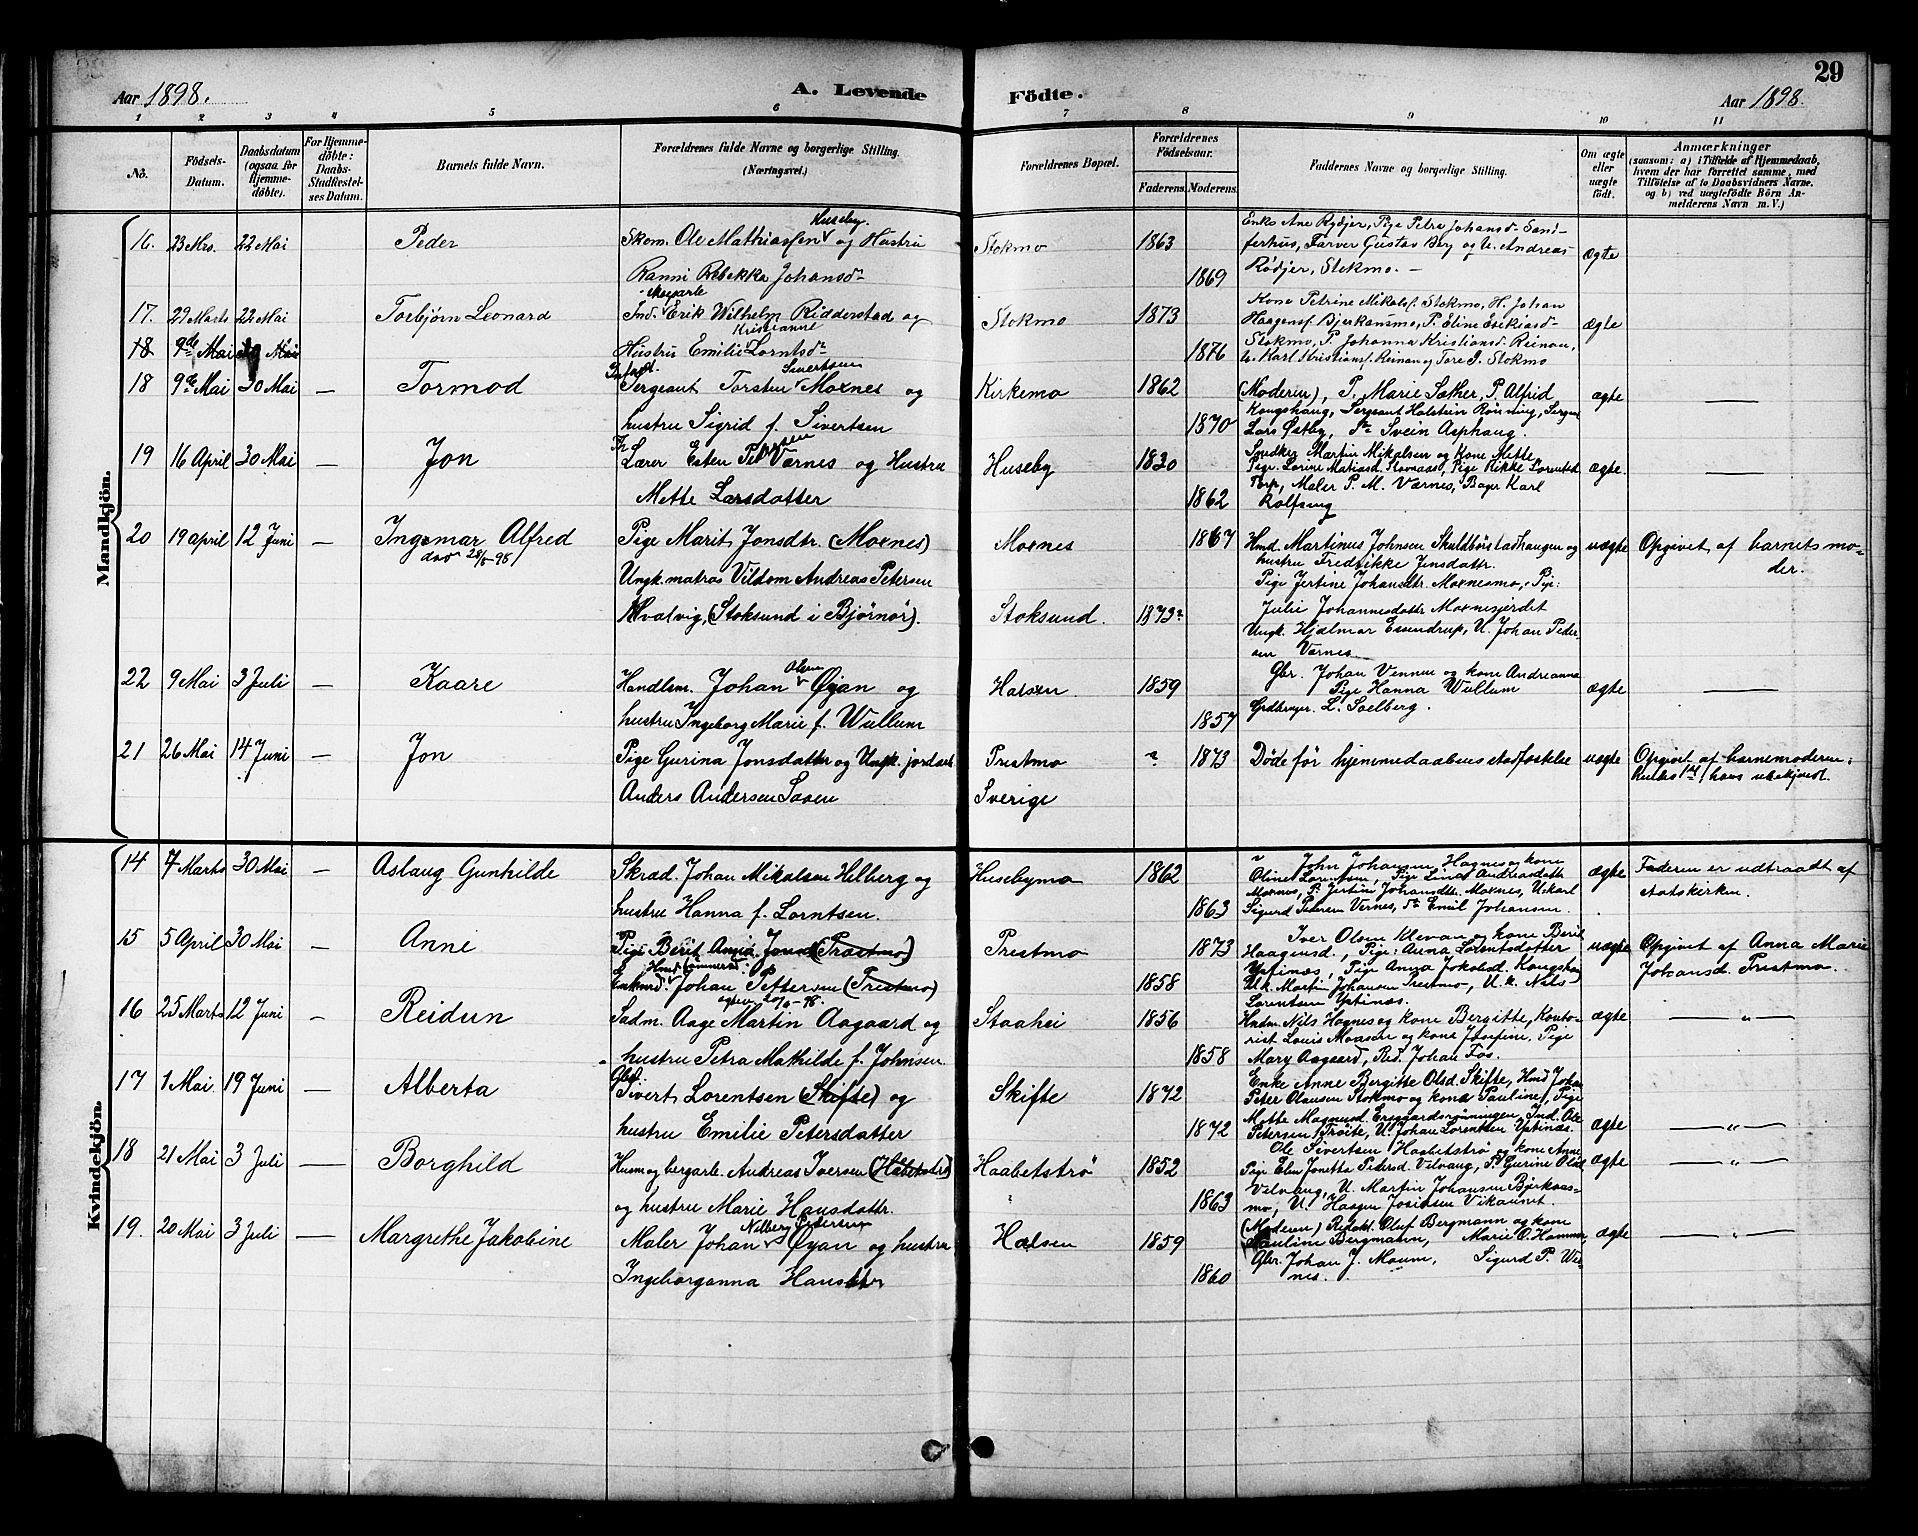 Aar 1898.
A. Levende
Födte.
Aar 1898.
29
1 2 3 4 5 6 7 8 9 10 11
No.
Födsels-
Datum.
Daabsdatum
(ogsaa for
Hjemme-
döbte).
For Hjemme-
döbte:
Daabs-
Stadfæstel-
ses Datum.
Barnets fulde Navn.
Forældrenes fulde Navne og borgerlige Stilling.
(Næringsvei.)
Forældrenes Bopæl.
Forældrenes
Födselsaar.
Faderens. Moderens.
Faddernes Navne og borgerlige Stilling.
Om ægte
eller
uægte
født.
Anmærkninger
(saasom: a) i Tilfælde af Hjemmedaab,
hvem der har forrettet samme, med
Tilföielse af to Daabsvidners Navne,
og b) ved uægtefödte Börn An-
melderens Navn m. V.)
Mandkjön.
16. 23 Mrs. 22 Mai Peder
Huseby.
Skom. Ole Mathiassen og Hustru
Ranni Rebekka Johansd.
Stokmo 1863 1869
Enke Ane Rødjer, Pige Petra Johansd.
Farver Gustav Berg og U. Andreas
Rødjer, Stokmo. —
ægte
17. 29 Marts 22 Mai Torbjørn Leonard
Ind. Erik Wilhelm Ridderstad og
Kristianne
Hustru Emilie Lorntsd.
Stokmo 1873 1876
Kone Petrine Mikalsd. Stokmo, H. Johan
Haagens. Bjerkansmo, P. Eline
Stokmo, P. Johanna Kristiansd. Reinan,
U. Karl Kristians. Reinan og Tore J. Stokmo
ægte
18 9de Mai
18 9de Mai 30 Mai — Tormod
Sivertsen
Sergeant Torsten Moxnes og
hustru Sigrid f. Sivertsen
Kirkemo 1862 1870
(Moderen), P. Marie Sather, P. Alfrid
Kongshaug, Sergeant Halstein Rønning,
Lars Østby, Svein Asphaug.
ægte —
19 16 April 30 Mai — Jon
Lærer Esten Værnes og Hustru
Mette Larsdatter
Huseby 1830 1862
Snedker Martin Mikalsen og Kone Mette
Pige Rikke Lorentsd.
Torp, Maler P. M. Værnes, Bager Karl
Rolfsing
ægte. —
20 19 april 12 Juni — Ingemar Alfred
Pige Marit Jonsdtr. (Moxnes)
Ungk. matros Vildom Andreas Petersen
Hvalvig, (Stoksund i Bjørnør).
Moxnes 1867
Stoksund. 1873?
Hmd. Martinus Johnsen Skuldbørstadhaugen og
hustru Fredrikke Jensdattr.
Pige Jertine Johansdtr. Moxnesmo,
Julie Johannesdattr Moxnesjerdet
Ungk. Hjalmar Essendrup, U. Johan Peder-
sen Værnes.
uægte
Opgivet af barnets mo-
der.
22 9 Mai 3 Juli — Kaare
Olsen
Handlsm. Johan Øyan og
hustru Ingeborg Marie f. Wullum
Halsen 1859 1857
Gbr. Johan Vennen og kone Andreanna
Pige Hanna Wullum
Grdbruger. L. Soelberg.
ægte —
21 26 Mai 14 Juni — Jon
Pige Gurina Jonsdatter og Ungk.
Anders Andersen
Prestmo
Sverige
? 1873
Døde før hjemmedaabens stadfæstelse
uægte
Opgivet af barnemoderen;
Kvindekjön.
14 7 Marts 30 Mai — Aslaug Gunhilde
Skræd. Johan Mikalsen Helberg og
hustru Hanna f. Lorntsen.
Husebymo 1862 1863
John Johansen Hognes og kone
Oline Lorentsen, Pige Lina Andreasdatt
Moxnes, P. Jertine Johansdtr. Moxnes, U. karl
Sigurd Petersen Vernes, Emil Johansen.
ægte
Faderen er udtraadt af
statskirken.
15 5 April 30 Mai Anne
Johan Pettersen (Prestmo)
Prestmo 1873 1858
Iver Olsen Klevan og kone Berit
Haagensd., Pige Anna Lorentsdatter
Ystinæs, Pige Anna Jakobsd.
U.k. Martin Johansen Prestmo, U. k. Nils
Lorentsen Ystinæs.
uægte
Opgivet af Anna Marie
Johansd. Prestmo.
16 25 Marts 12 Juni - Reidun
Aage Martin Aagaard og
hustru Petra Mathilde f. Johnsen
Staahei 1856 1858
Hndm. Nils Hognes og kone Bergitte, Konto-
rist Louis Moksen og kone Josefine, Pige
Mary Aagaard, Red. Johan Fos.
ægte — " —
17 1 Mai 19 Juni — Alberta
Sivert Lorentsen (Skifte) og
hustru Emilie Petersdatter
Skifte 1872 1872
Enke Anne Bergitte Olsd. Skifte, Hmd Johan
Peter Olausen Stokmo og kone Pauline, Pige
Mette Magnusd. Ersgaardsrønningen, Ind. Ole
Petersen Trøite, U. Johan Lorentsen Ystinæs
ægte — " —
18 21 Mai 3 Juli — Borghild
Husm og bergarb. Andreas Iversen
og hustru Marie Hansdattr.
Haabetstrø 1852 1863
Ole Sivertsen Haabetstrø og kone Anne
Pige Elen Jonetta Pedersd. Vilvang, P. Gurine
Vilvang, U. Martin Johansen Bjerkaas-
mo, U. Haagen Josiasen Vikaunet.
ægte — " —
19. 20 Mai 3 Juli — Margrethe Jakobine
Maler Johan Øyan og hustru
Ingeborganna
Halsen 1859 1860
(Moderen) Redakt. Oluf Bergmann og kone
Pauline Bergmann, Marie O. Hammer,
Gbr. Johan J. Moum, Sigurd P. Ver-
nes.
ægte — " —